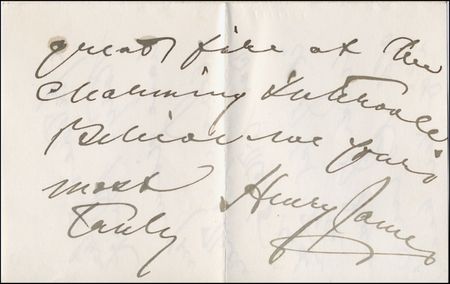 great fire at the
charming Intervale.
Believe me yours
most
truly Henry James